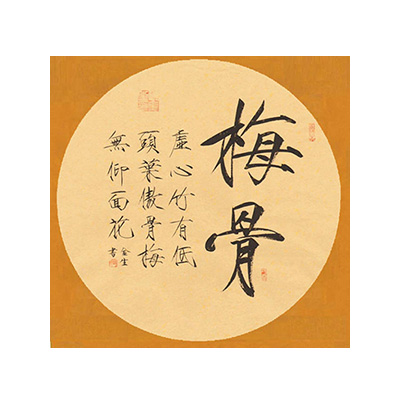 梅骨
虚心竹有低
頭葉傲骨梅
無仰面花
金生
书